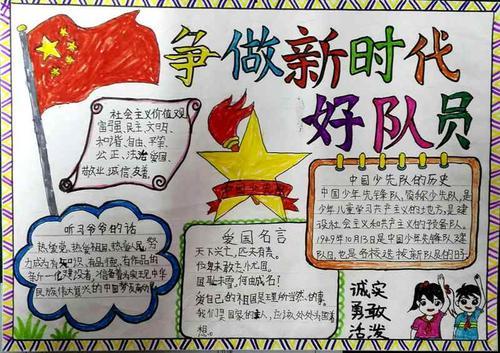 争做新时代
好队员
社会主义价值观
富强、民主、文明、
和谐、自由、平等、
公正、法治、爱国、
敬业、诚信、友善
中国少先队
中国少先队的历史
中国少年先锋队，简称少先队，是
少年儿童学习共产主义的地方，是建
设社会主义和共产主义的预备队。
1949年10月13日是中国少年先锋队建
队日，也是各校选拔新队员的时
听习爷爷的话
热爱党、热爱祖国、热爱人民，努
力成为有知识、有品德、有作为的
新一代建设者，准备着为实现中华
民族伟大复兴的中国梦
爱国名言
天下兴亡，匹夫有责。
位卑未敢忘忧国。
国耻未雪，何由成名！
爱自己的祖国是理所当然的事。
我们是国家的主人，应该处处为国着
想。
诚实
勇敢
活泼